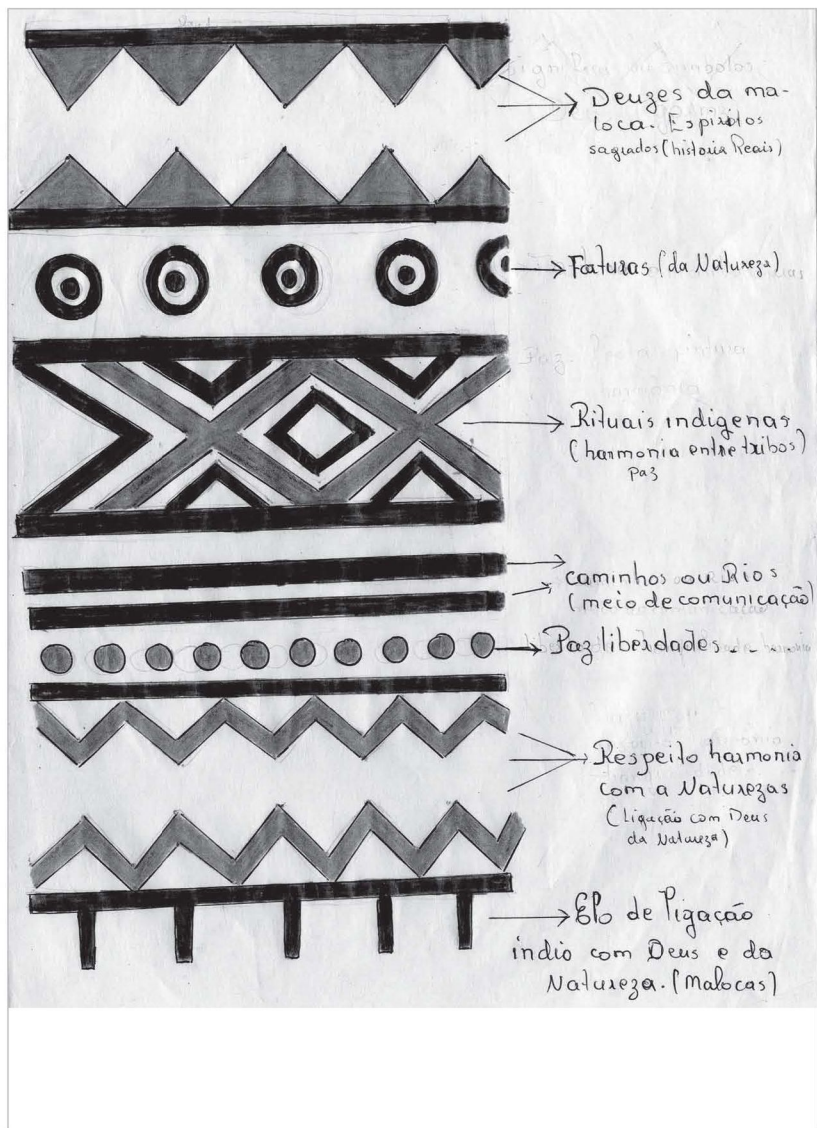 Deuzes da ma-
loca. Espiritos
sagrados (historia Reais)
Faturas (da Natureza)
Rituais indigenas
(harmonia entre tribos)
Paz
caminhos ou Rios
(meio de comunicação)
Paz liberdades...
Respeito harmonia
com a Naturezas
(Ligação com Deus
da Natureza)
Elo de ligação
indio com Deus e da
Natureza. (Malocas)